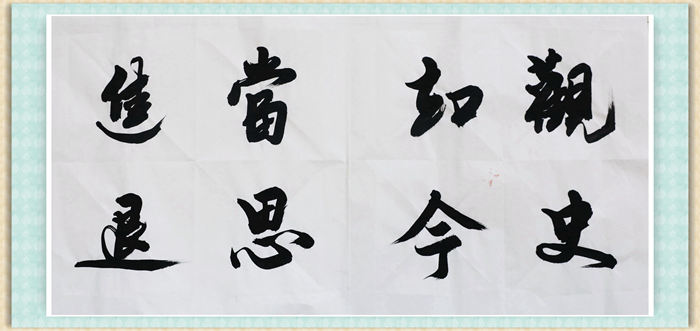 觀史
知今
當思
進退